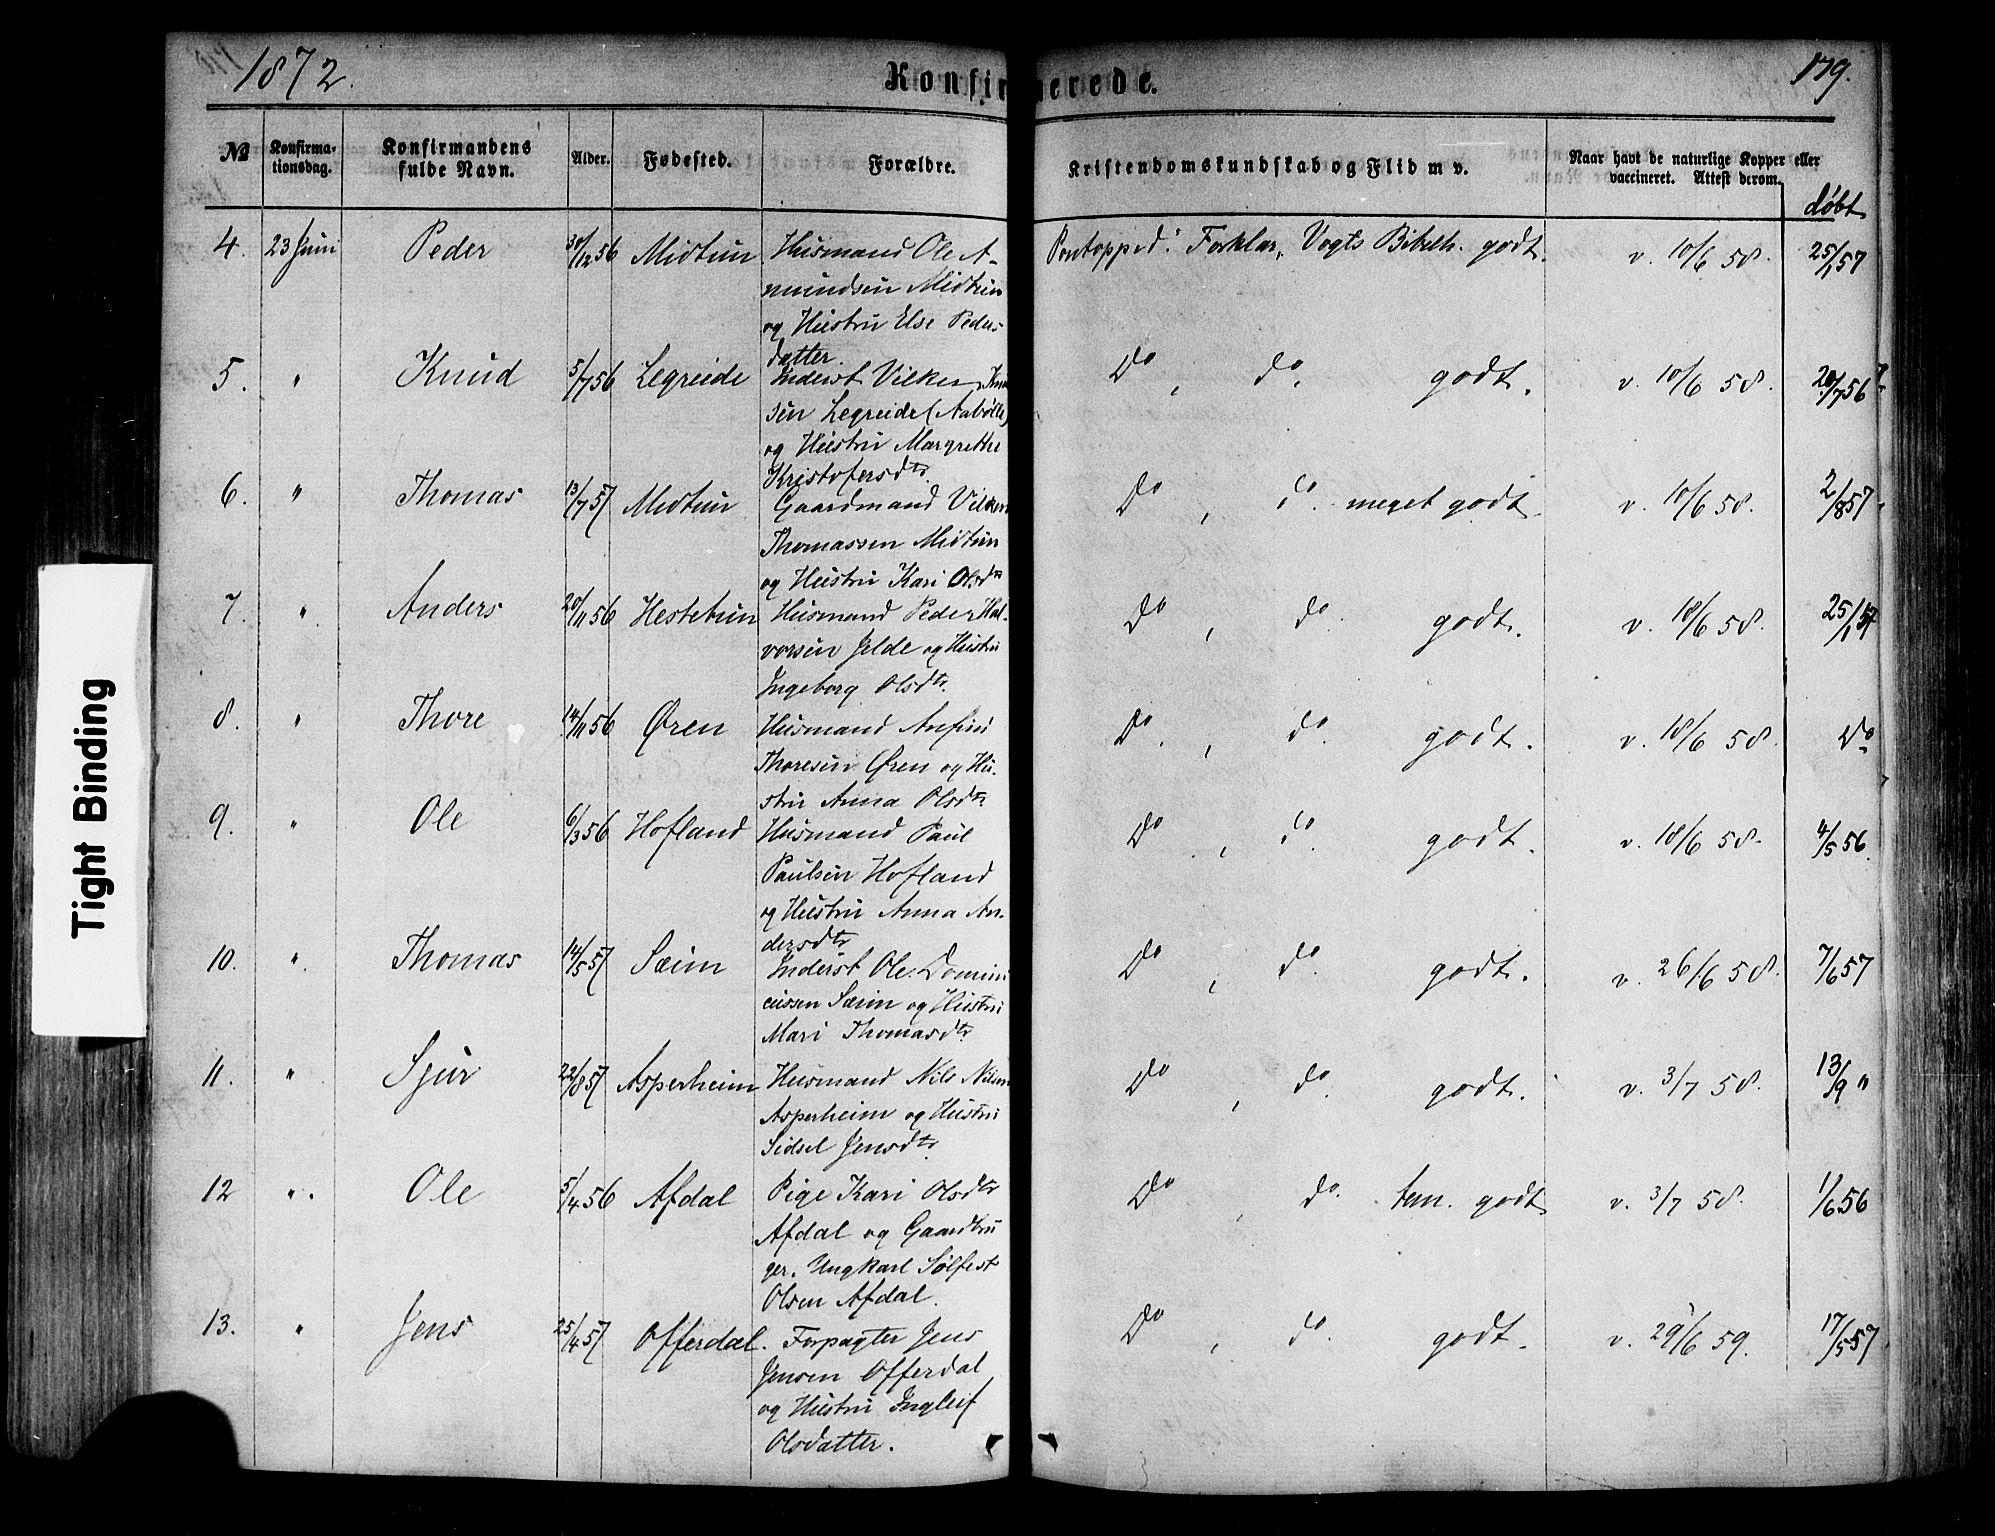 1872.
Konfirmerede.
179.
№
Konfirma-
tionsdag.
Konfirmandens
fulde Navn.
Alder.
Fødested.
Forældre.
Kristendomskundskab og Flid m v.
Naar havt de naturlige Kopper eller
vaccineret. Attest derom.
døbt
4. 23 Juni Peder 30/12 56 Midtun Husmand Ole A- Pontoppid. Forklar., Vogts Bibelh. godt. v. 10/6 58. 25/1 57
mundsen Midtun
og Hustru Else Peders
datter.
5. " Knud 5/7 56 Legreide Inderst Vilken Knu Do , do. godt. v. 10/6 58. 20/7 56
sen Legreide (Aabølle)
og Hustru Margrethe
Kristofersdtr
6. " Thomas 13/7 57 Midtun Gaardmand Vilken Do , do. meget godt. v. 10/6 58. 2/8 57.
Thomassen Midtun
og Hustru Kari Olsdtr
7. " Anders 20/11 56 Hestetun Husmand Peder Hal- Do , do. godt. v. 18/6 58. 25/1 57
vorsen Jelde og Hustru
Ingeborg Olsdtr.
8. " Thore 14/11 56 Øren Husmand Anfin Do. , do. godt. v. 18/6 58. Do
Thoresen Øren og Hu-
stru Anna Olsdtr.
9. " Ole 6/3 56 Hofland Husmand Paul Do , do. godt. v. 18/6 58. 4/5 56.
Paulsen Hofland
og Hustru Anna An-
dersdtr
10. " Thomas 14/5 57 Sæim Inderst Ole Domini Do , do. godt. v. 26/6 58. 7/6 57
cussen Sæim og Hustru
Mari Thomasdtr.
11. " Sjur 22/8 57 Asperheim Husmand Nils Nilsen Do , do. godt. v. 3/7 58. 13/9 "
Asperheim og Hustru
Sidsel Jensdtr.
12 " Ole 5/4 56 Afdal Pige Kari Olsdtr Do , do. tem. godt. v. 3/7 58. 1/6 56
Afdal og Gaardbru
ger. Ungkarl Sølfest
Olsen Afdal.
13. " Jens 25/4 57 Offerdal. Forpagter Jens Do , do. godt. v. 29/6 59. 17/5 57.
Jensen Offerdal
og Hustru Ingleif
Olsdatter.
Tight Binding